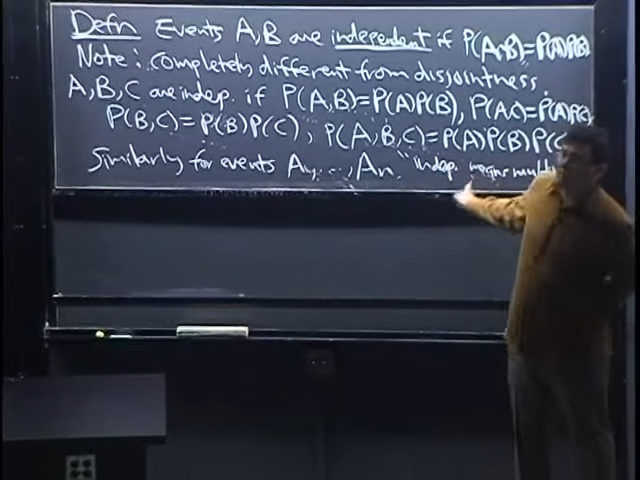 Defn Events A,B are independent if P(A∩B)=P(A)P(B)
Note: completely different from disjointness.
A,B,C are indep. if P(A,B)=P(A)P(B), P(A,C)=P(A)P(C)
P(B,C)=P(B)P(C), P(A,B,C)=P(A)P(B)P(C
Similarly for events A1,...,An. "indep. means mult